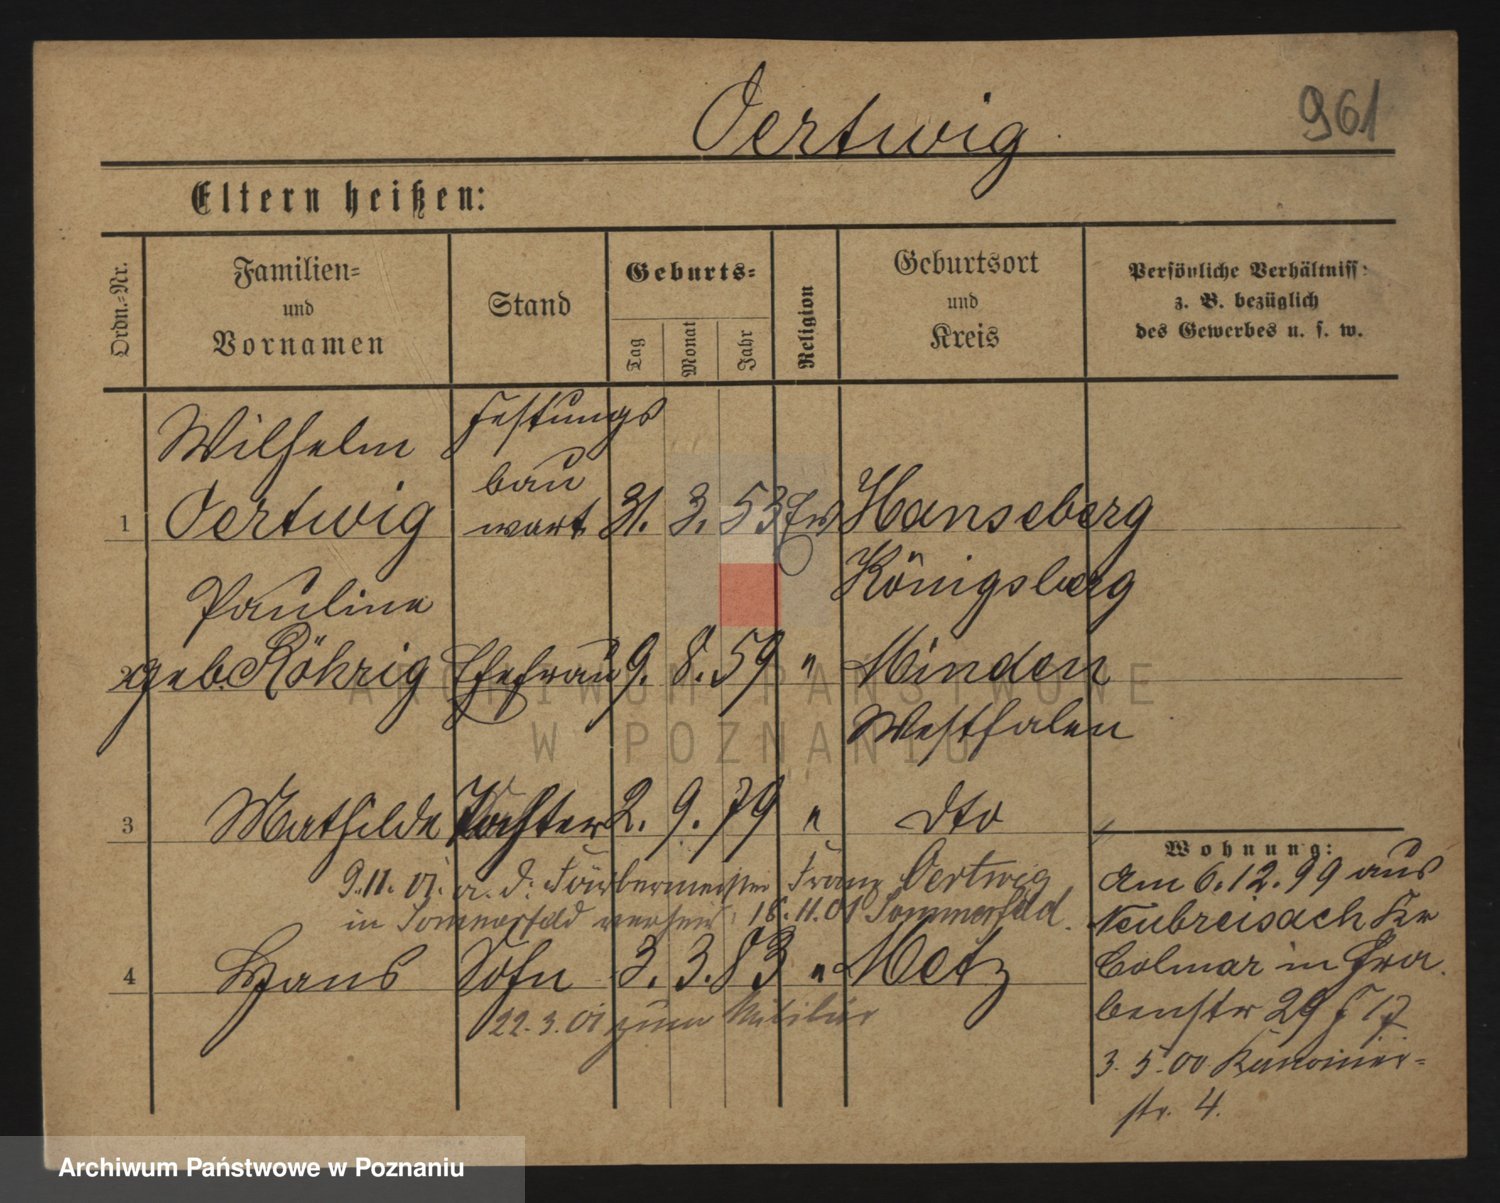 Oertwig
961
Eltern heißen:
Ordn.-Nr.
Familien-
und
Vornamen
Stand
Geburts-
Tag
Monat
Jahr
Religion
Geburtsort
und
Kreis
Persönliche Verhältniss:
z. B. bezüglich
des Gewerbes u. s. w.
1
Wilhelm
Oertwig
Festungs
bau
wart
31. 3. 53
Ev
Hanseberg
Königsberg
2
Pauline
geb. Röhrig
Ehefrau
9. 8. 59
"
Minden
Westfalen
3
Mathilde
Tochter
2. 9. 79
"
dto
9.11.01. a. d. Färbermeister Franz Oertwig
in Sommerfeld verheir. 18.11.01 Sommerfeld.
4
Hans
Sohn
3. 3. 83
"
Metz
22.3.01 zum Militär
Wohnung:
Am 6.12.99 aus
Neubreisach Kr
Colmar in Gra
benstr 29
3. 5. 00 Kanonier-
str. 4.
ARCHIWUM PAŃSTWOWE
W POZNANIU
Archiwum Państwowe w Poznaniu